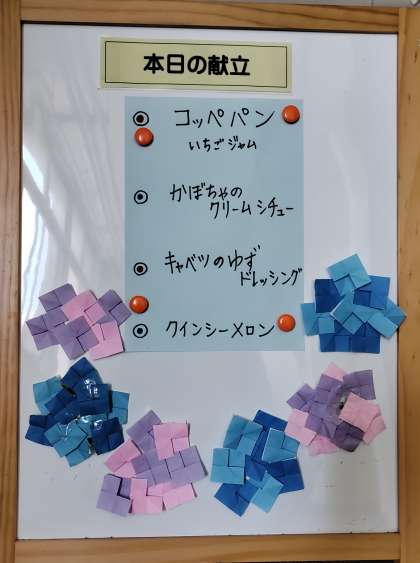 本日の献立
◉ コッペパン
いちごジャム
◉ かぼちゃの
クリームシチュー
◉ キャベツのゆず
ドレッシング
◉ クインシーメロン